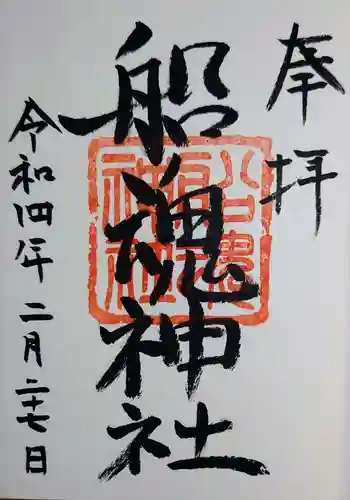 奉拝
船魂神社
令和四年二月二十七日